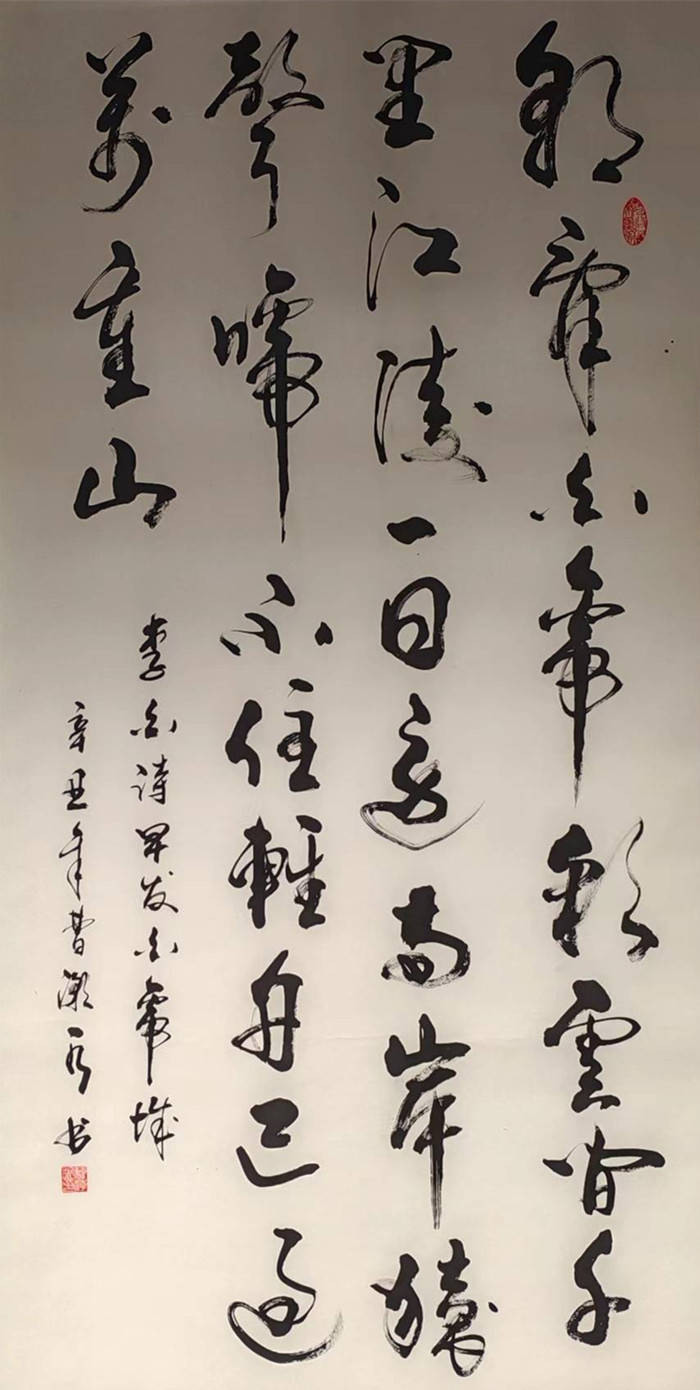 朝辞白帝彩雲间千
里江陵一日還两岸猿
聲啼不住輕舟已過
萬重山
李白诗早发白帝城
辛丑年曹书